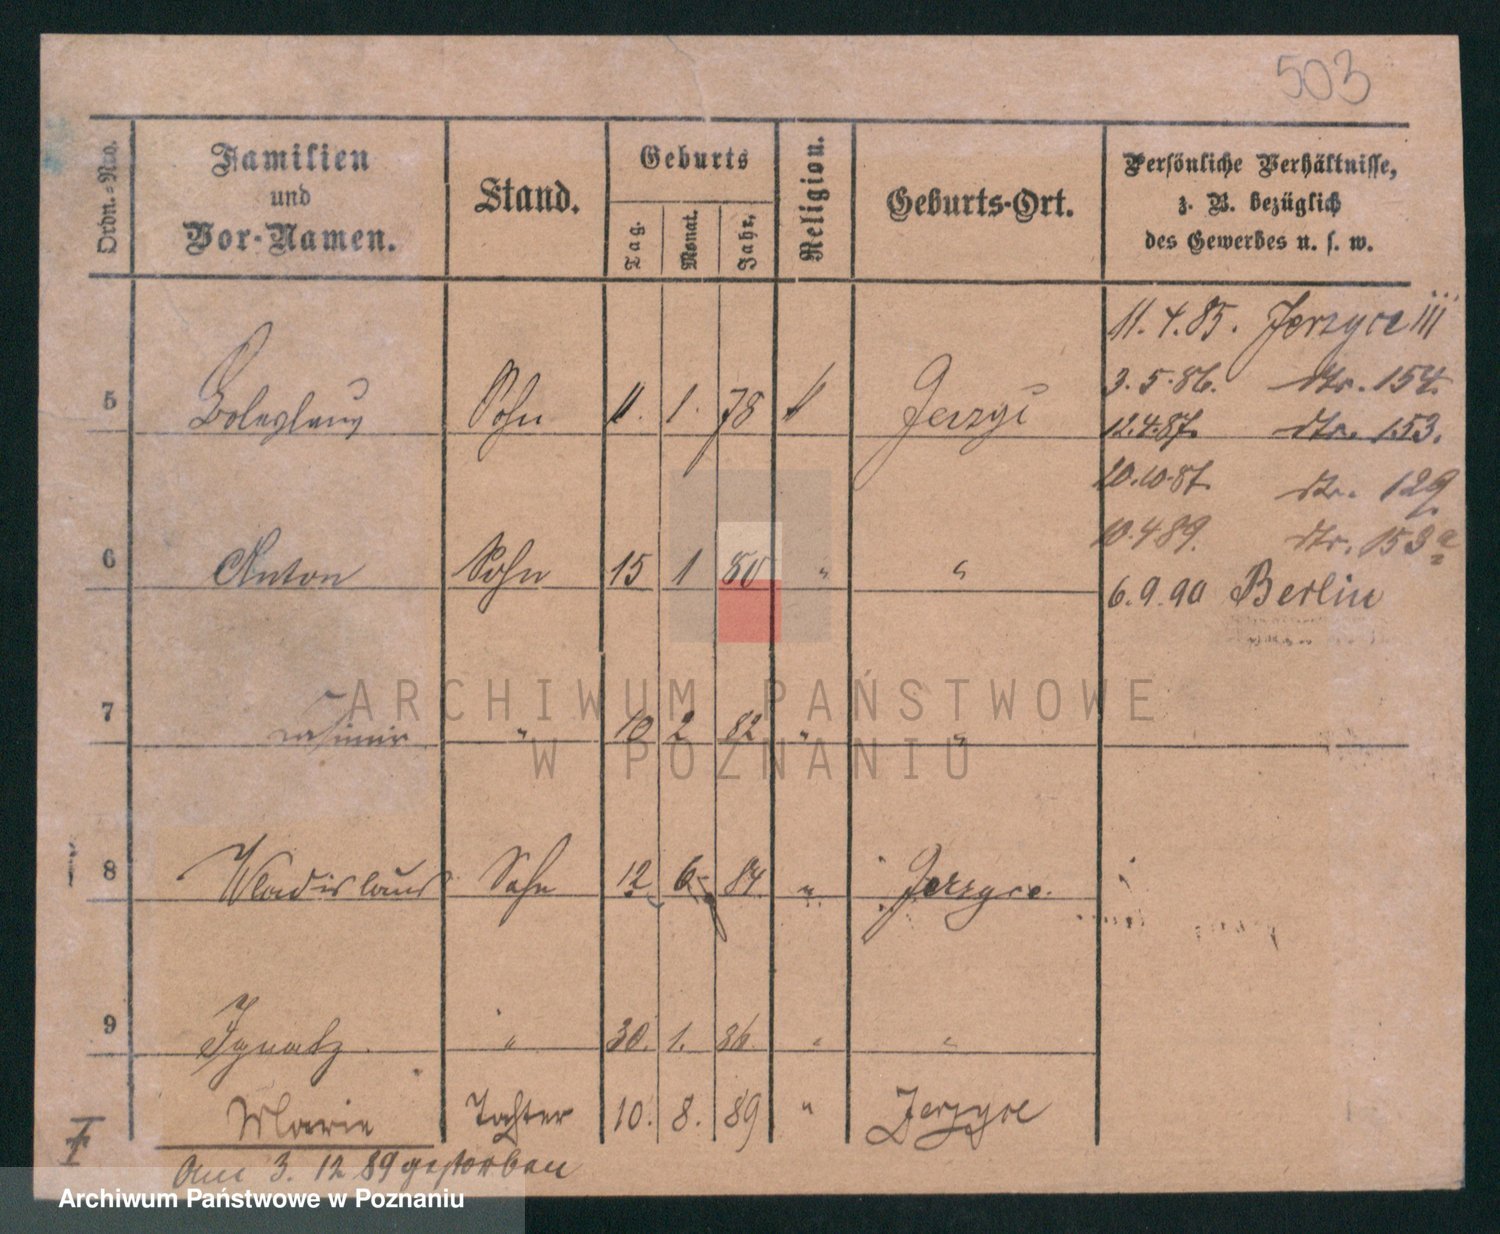 503
Ordn.=Nro.
Familien
und
Vor-Namen.
Stand.
Geburts
Tag.
Monat.
Jahr.
Religion.
Geburts-Ort.
Persönliche Verhältnisse,
z. B. bezüglich
des Gewerbes u. s. w.
11.4.85. Jerzyce III
3.5.86. dto. 154.
5 Boleslaus Sohn 11. 1. 78 Jerzyc
12.4.87. dto. 153.
20.10.87. dto. 129
10.4.89. dto. 153a
6 Anton Sohn 15 1 80 " "
6.9.90 Berlin
7 Casimir " 10 2 82 " "
ARCHIWUM PAŃSTWOWE
W POZNANIU
8 Wladislaus Sohn 12 6 84. " Jerzyce.
9 Ignatz. " 30. 1. 86. " "
Marie Tochter 10. 8. 89 " Jerzyce
Am 3. 12 89 gestorben
Archiwum Państwowe w Poznaniu